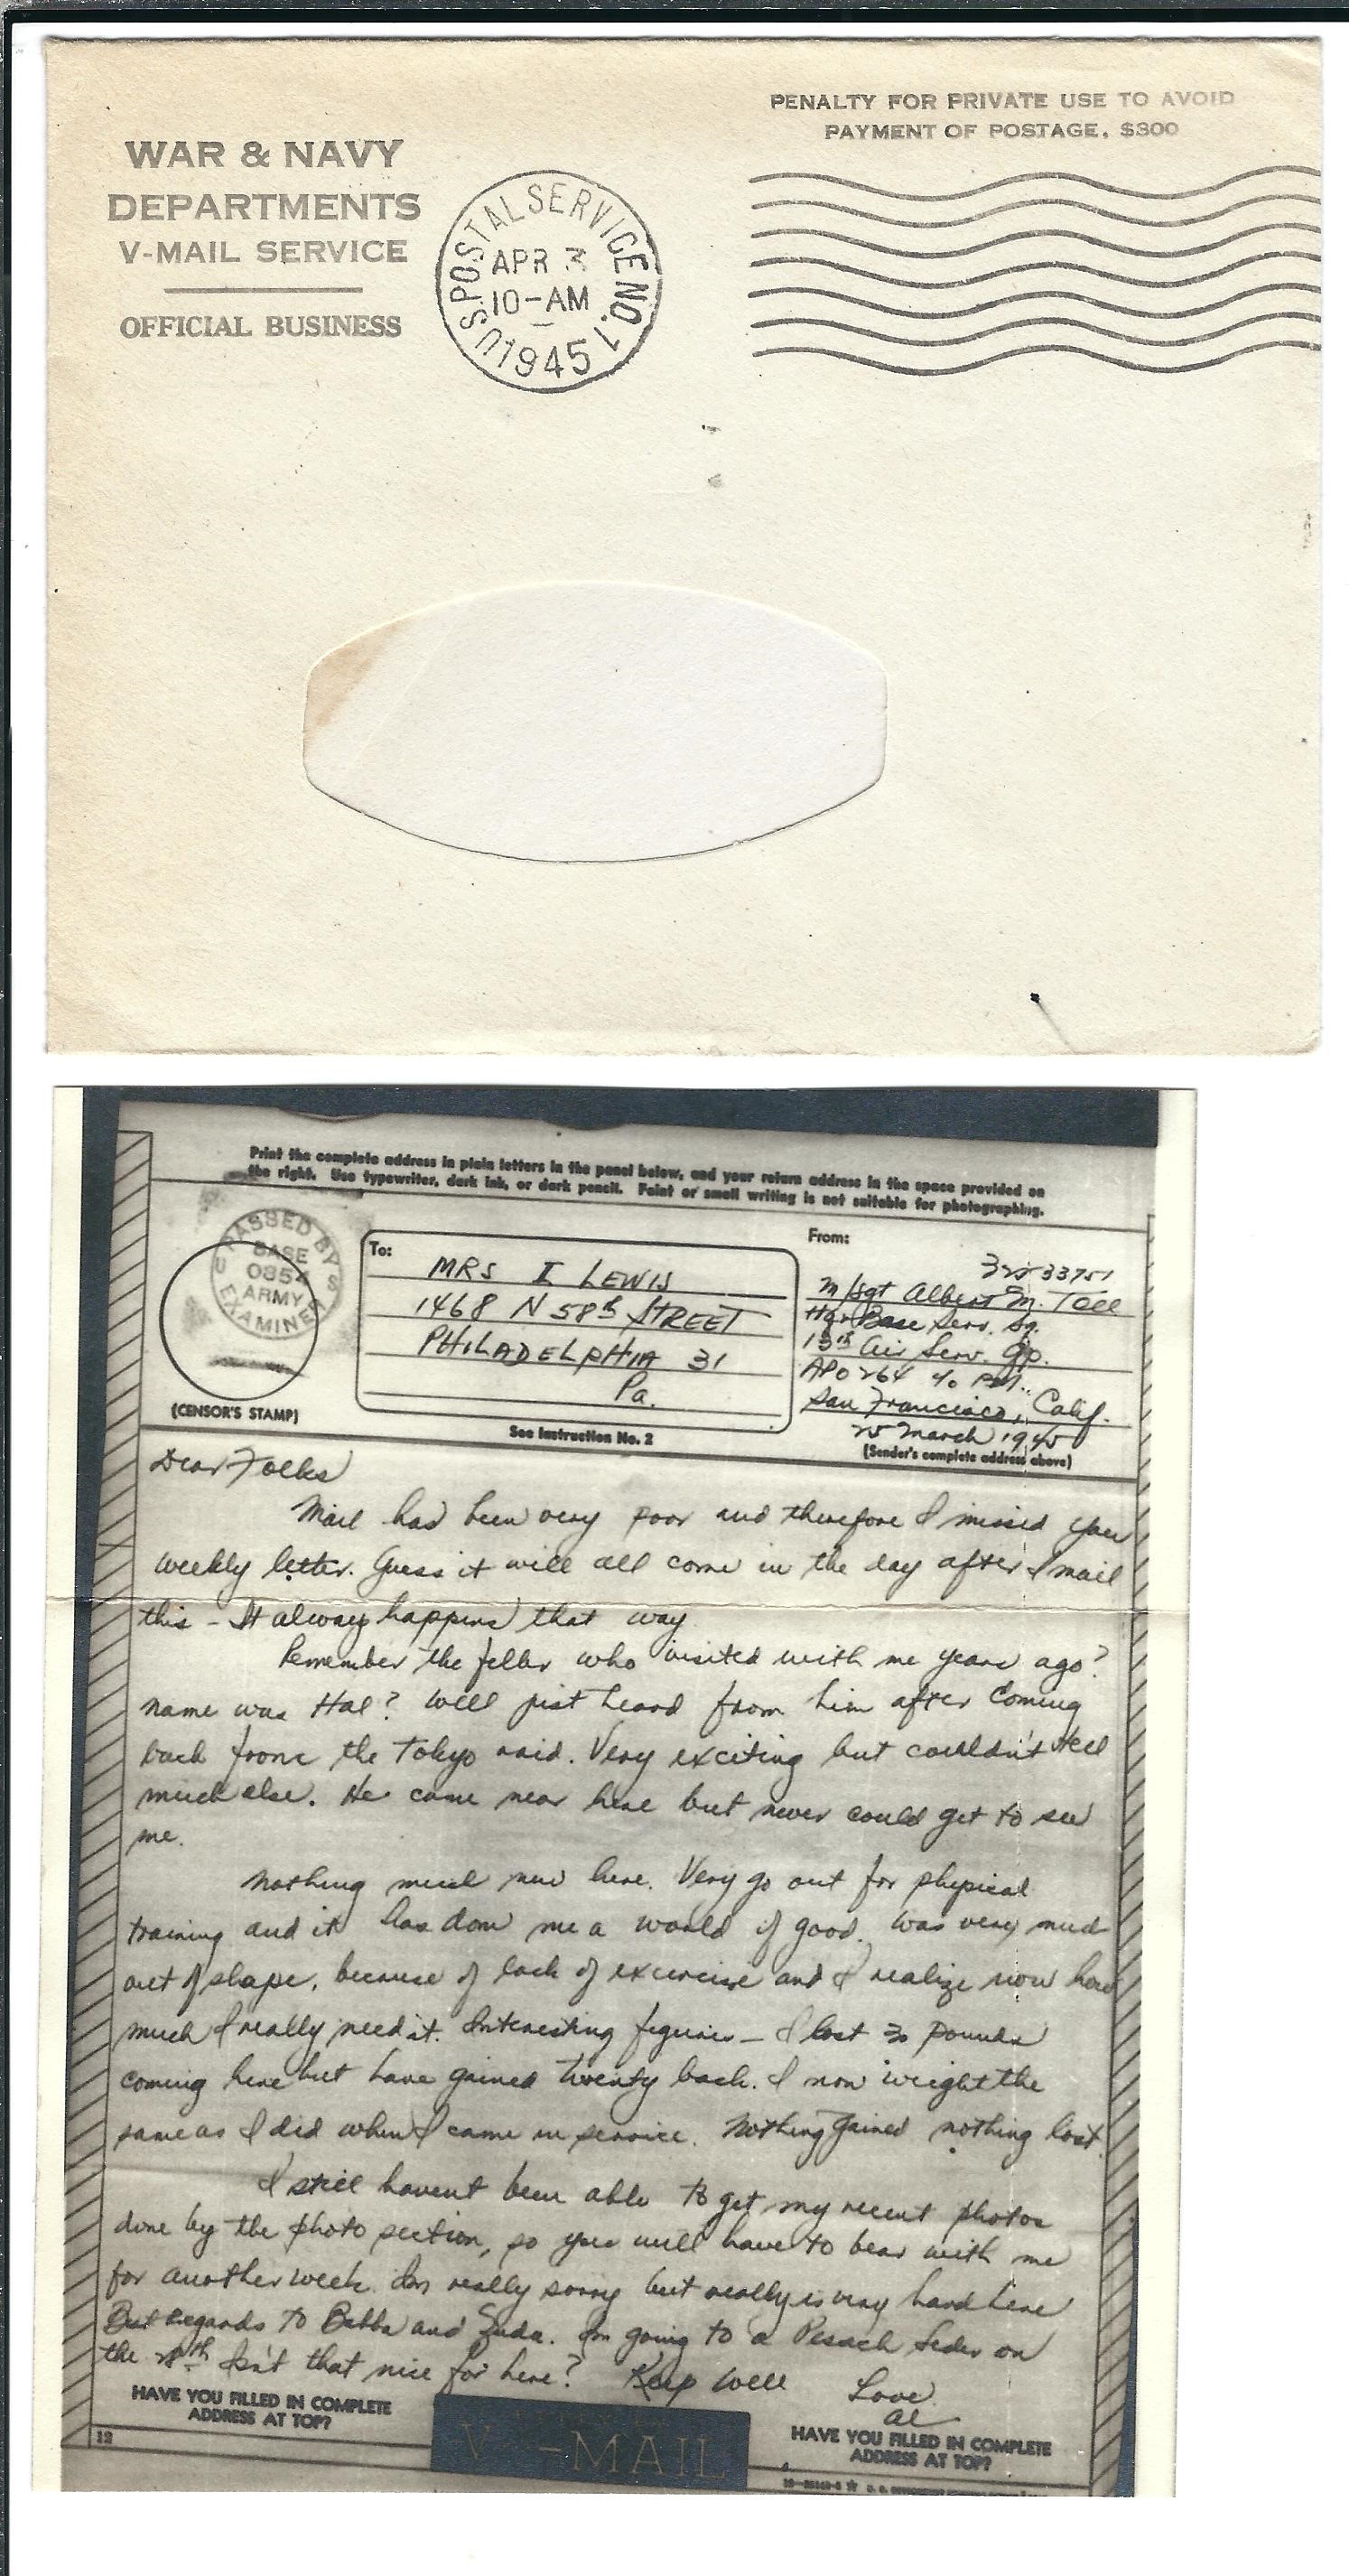 PENALTY FOR PRIVATE USE TO AVOID
PAYMENT OF POSTAGE, $300
WAR & NAVY
DEPARTMENTS
V-MAIL SERVICE
OFFICIAL BUSINESS
U.S. POSTAL SERVICE NO. 1
APR 3
10-AM
1945
Print the complete address in plain letters in the panel below, and your return address in the space provided on
the right. Use typewriter, dark ink, or dark pencil. Faint or small writing is not suitable for photographing.
PASSED BY
BASE
0854
ARMY
EXAMINER
U S
(CENSOR'S STAMP)
To:
MRS I LEWIS
1468 N 58th STREET
PHILADELPHIA 31
Pa.
See Instruction No. 2
From:
32533751
M/Sgt Albert M. Toll
Hqr Base Serv. Sq.
13th Air Serv. Gp.
APO 264 c/o P.M..
San Francisco, Calif.
25 March 1945
(Sender's complete address above)
Dear Folks
Mail has been very poor and therefore I missed your
weekly letter. Guess it will all come in the day after I mail
this - It always happens that way
Remember the feller who visited with me years ago?
name was Hal? Well just heard from him after coming
back from the Tokyo raid. Very exciting but couldn't tell
much else. He came near here but never could get to see
me.
Nothing much new here. Very go out for physical
training and it has done me a world of good. Was very much
out of shape, because of lack of excercise and I realize now how
much I really need it. Interesting figures - I lost 30 pounds
coming here but have gained twenty back. I now weight the
same as I did when I came in service. Nothing gained nothing lost.
I still havent been able to get my recent photos
done by the photo section, so you will have to bear with me
for another week. Im really sorry but really is very hard here
Best regards to Bobba and Zuda. Im going to a Pesach Seder on
the 28th Isn't that nice for here? Keep Well Love
al
HAVE YOU FILLED IN COMPLETE
ADDRESS AT TOP?
V-MAIL
HAVE YOU FILLED IN COMPLETE
ADDRESS AT TOP?
12